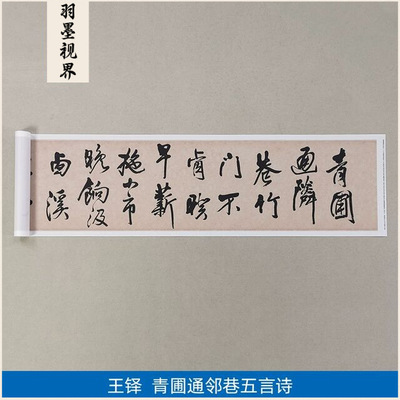 羽墨视界
青圃
通隣
巷竹
门不
肯睽
早薪
小市
晚餉汲
溪
王铎 青圃通邻巷五言诗